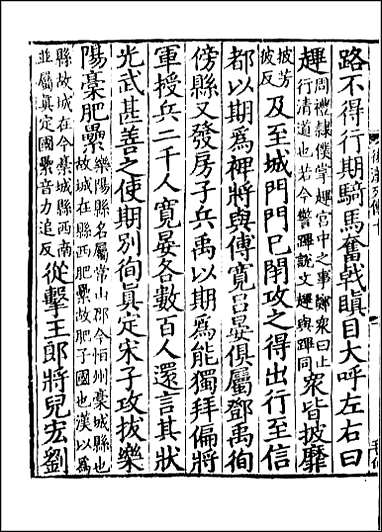 路不得行期騎馬奮戟瞋目大呼左右曰
趩周禮隸僕掌趩宮中之事鄭衆曰止行清道也若今警蹕說文趩與蹕同衆皆披靡
披芳披反及至城門門已閉攻之得出行至信
都以期爲裨將與傅寛吕晏俱屬鄧禹徇
傍縣又發房子兵禹以期爲能獨拜偏將
軍授兵二千人寛晏各數百人還言其狀
光武甚善之使期別徇眞定宋子攻拔樂
陽槀肥纍樂陽縣名屬常山郡今恒州槀城縣也故城在縣西肥纍故肥子國也漢以爲
縣故城在今槀城縣西南並屬眞定國纍音力追反從擊王郎將兒宏劉